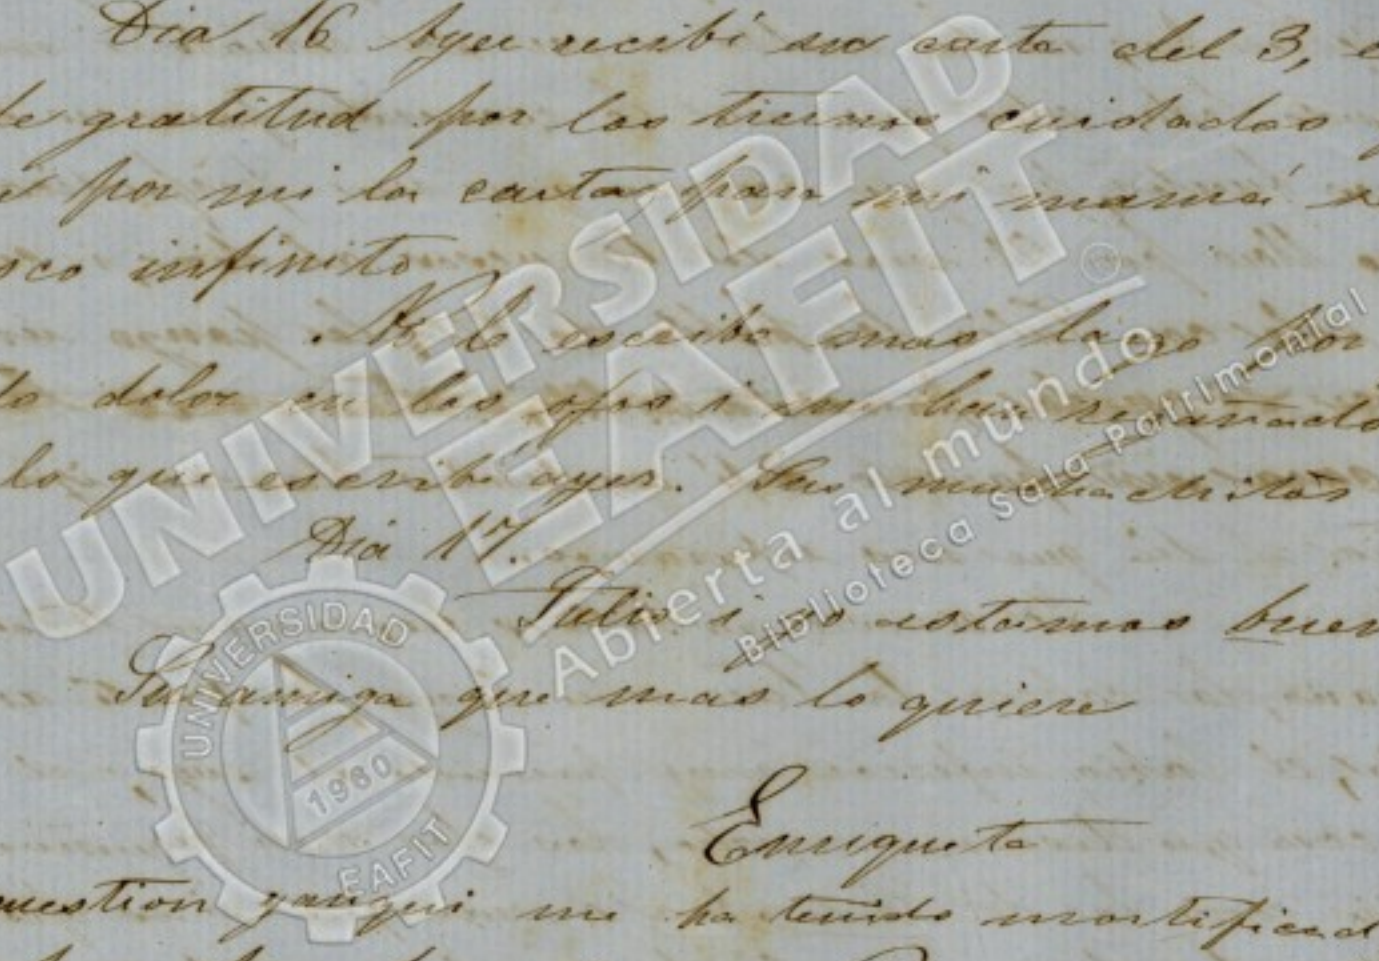 Dia 16 Ayer recibí su carta del 3,
de gratitud por los tiernos cuidados
por mi la carta para mi mamá
oco infinito
No le escribo mas largo por
do dolor en los ojos i me han regañado
lo que escribí ayer. Sus muchachitos
Dia 17.
Julio i yo estamos buen
Su amiga que mas lo quiere
Enriqueta
uestion yanqui me ha tenido mortificad
UNIVERSIDAD
EAFIT
®
Abierta al mundo
Biblioteca Sala Patrimonial
UNIVERSIDAD
1960
EAFIT